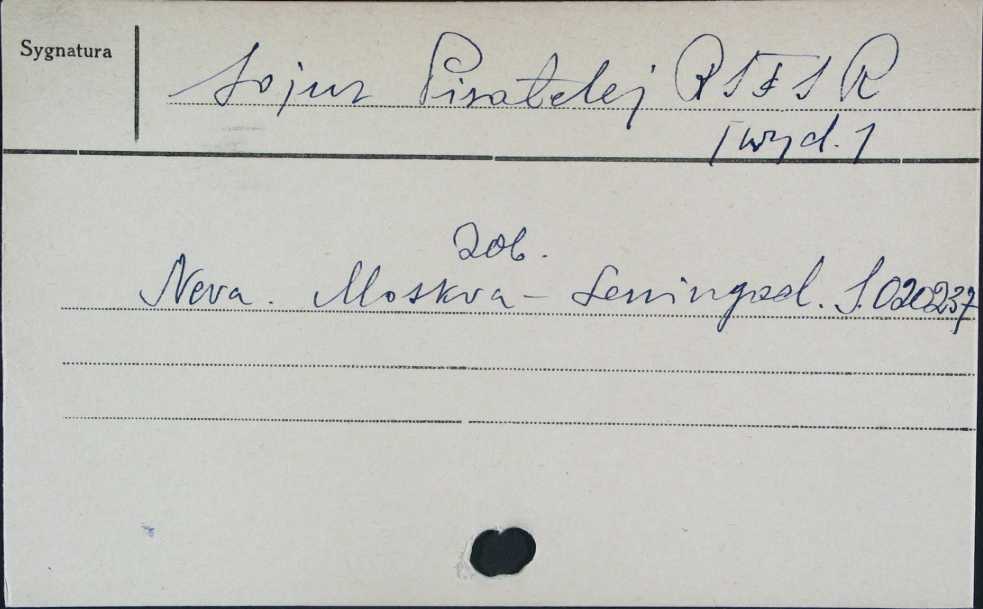 Sygnatura
Sojuz Pisatelej RSFSR
[wyd.]
zob.
Neva. Moskva - Leningrad. S.020237